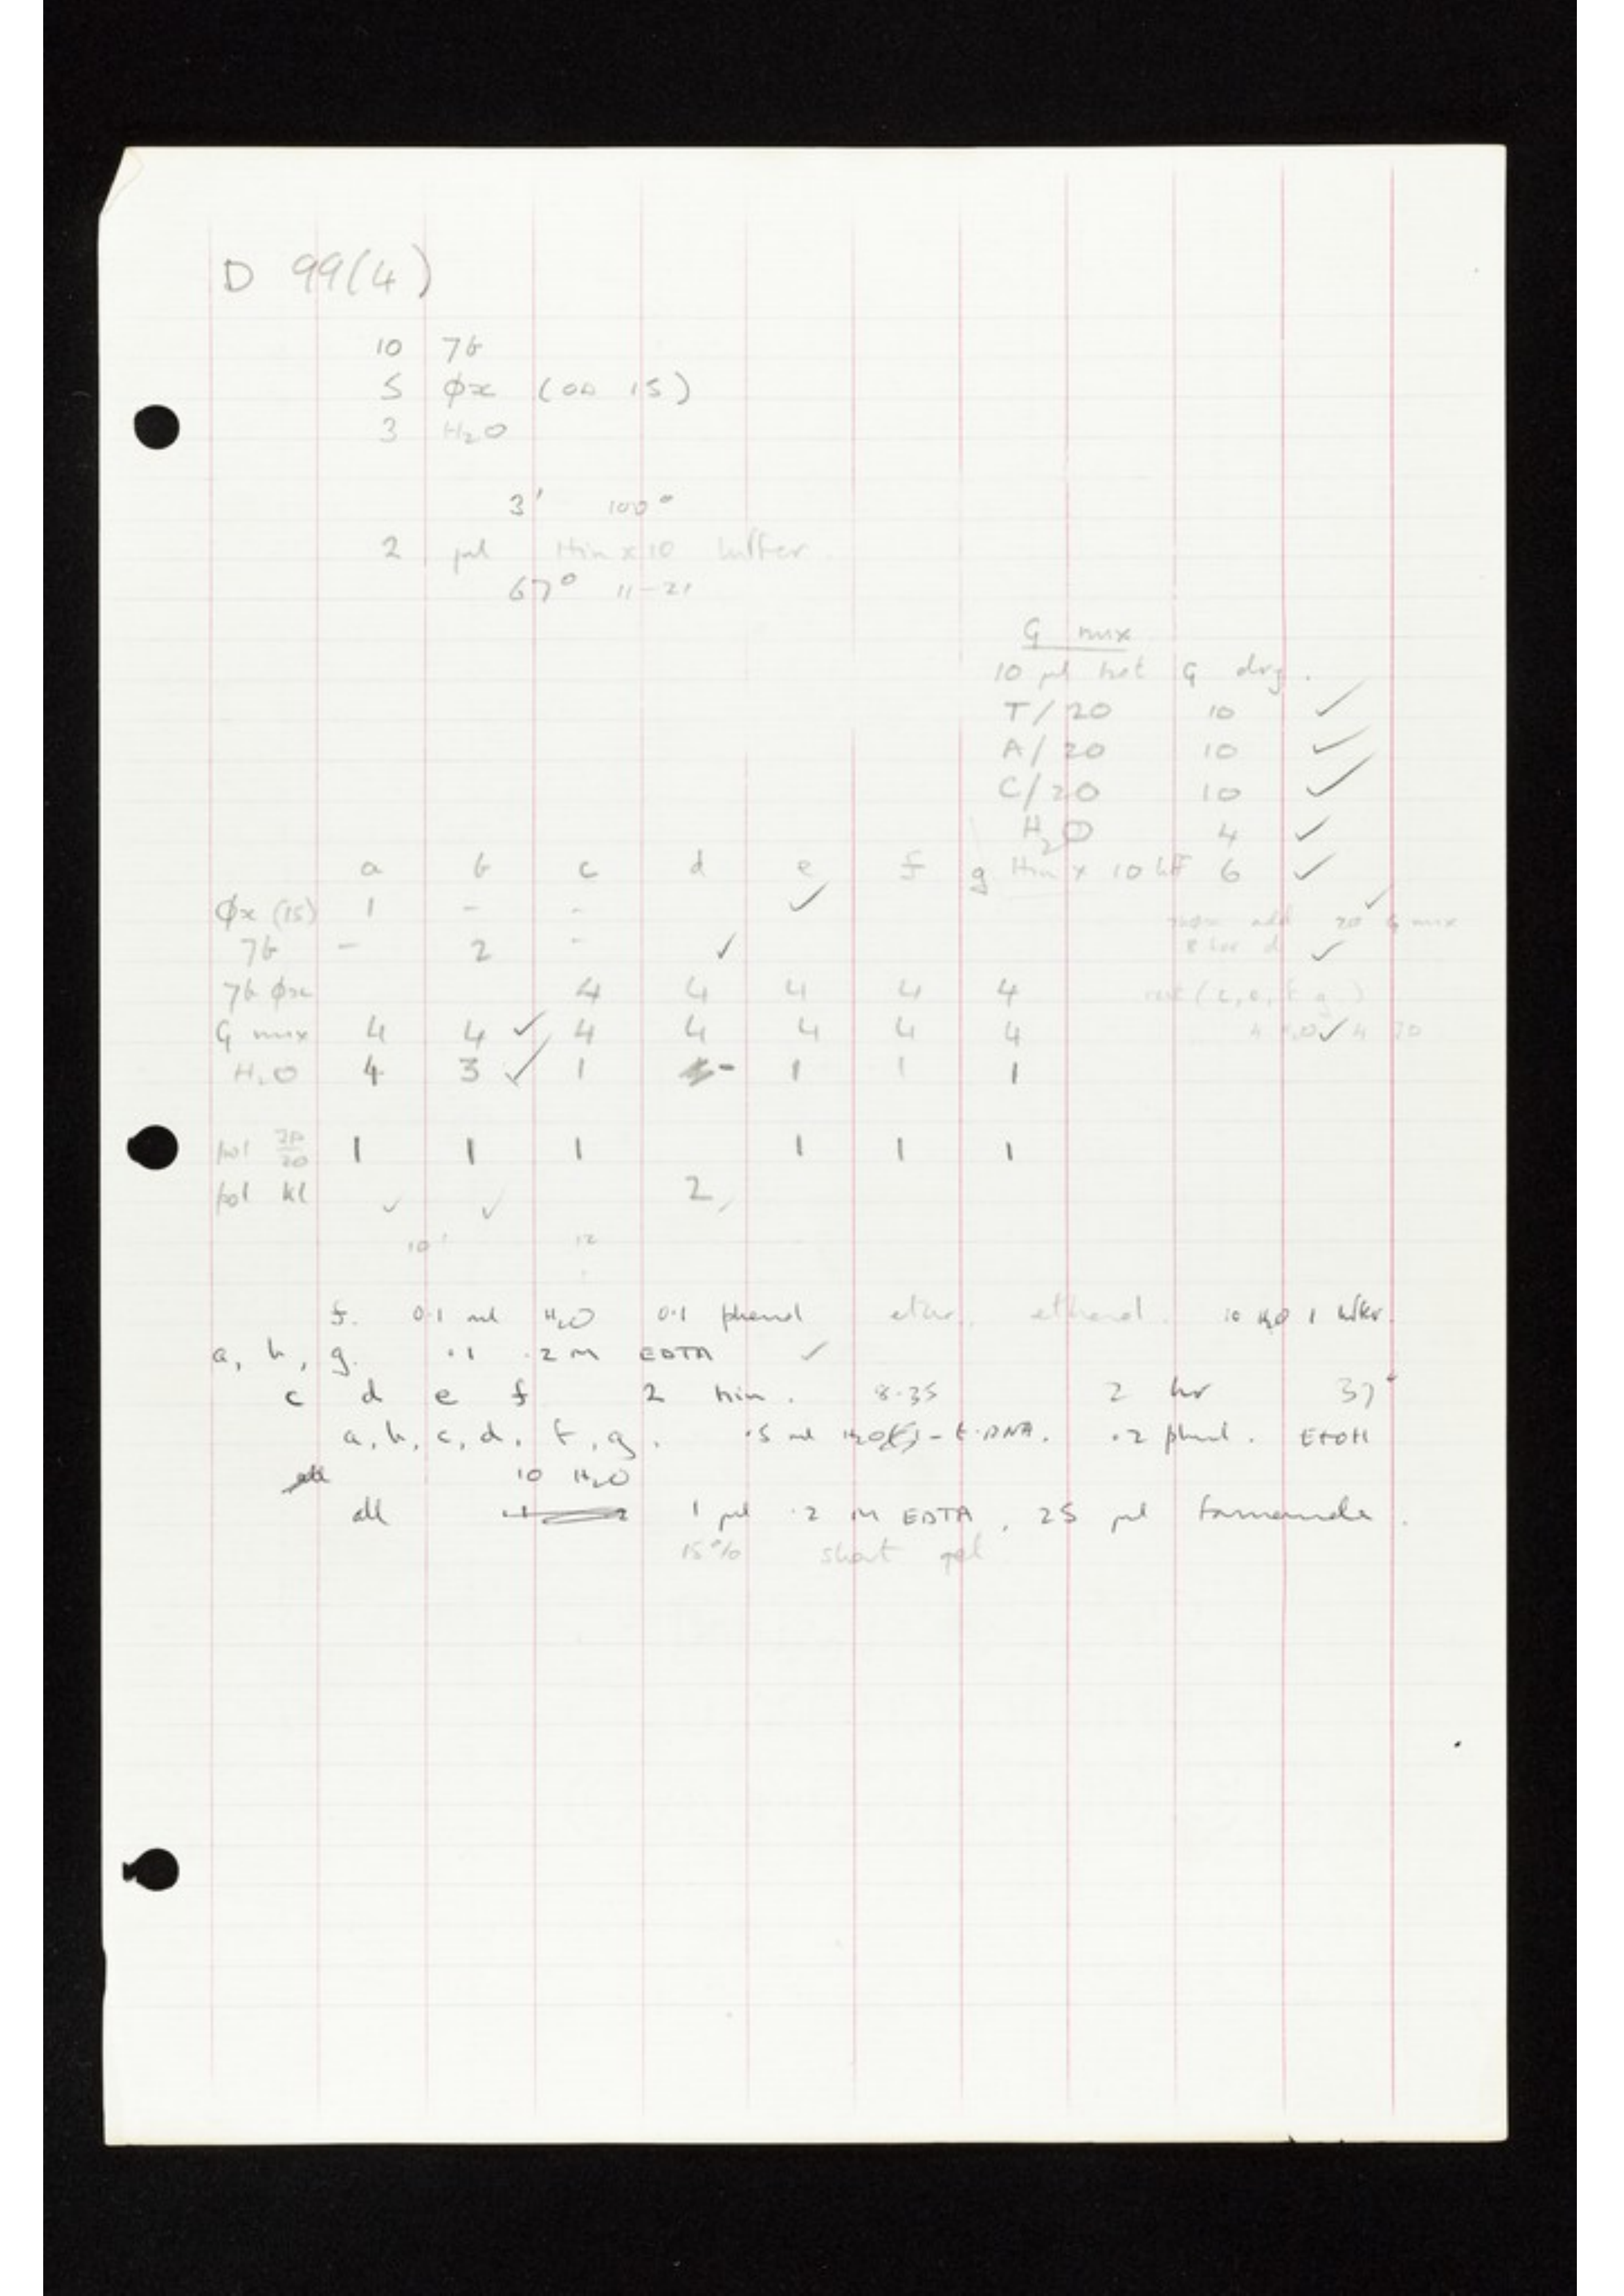 D 99(4)
10 7b
5 φx (OD 15)
3 H2O
3' 100°
2 µl Hin x 10 buffer.
67° 11-21
G mix
10 µl hot G dry.
T/20 10 ✓
A/20 10 ✓
C/20 10 ✓
H2O 4 ✓
Hin x 10 bff 6 ✓
a b c d e f g
φx (15) 1 - - ✓
7b - 2 - ✓
add 20 G mix ✓
✓
7b φx 4 4 4 4 4
rest (c, e, f g)
G mix 4 4 ✓ 4 4 4 4 4
H2O 4 3 ✓ 1 - 1 1 1
pol 1 1 1 1 1 1
pol kl ✓ ✓ 2
10' 12
f. 0.1 ml H2O 0.1 phenol ether. ethanol. 10 H2O 1 buffer.
a, b, g. .1 .2 M EDTA ✓
c d e f 2 Hin. 8.35 2 hr 37°
a, b, c, d, f, g. .5 ml H2O - t.DNA. .2 phenol. EtOH
10 H2O
all 1 µl .2 M EDTA, 25 µl formamide.
15% short gel